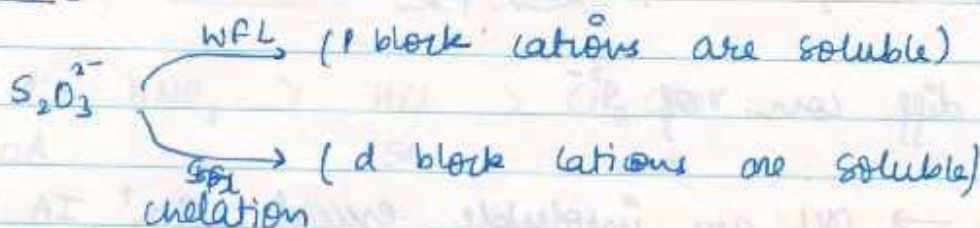 WFL (P block cations are soluble)
S₂O₃²⁻
(d block cations are soluble)
chelation